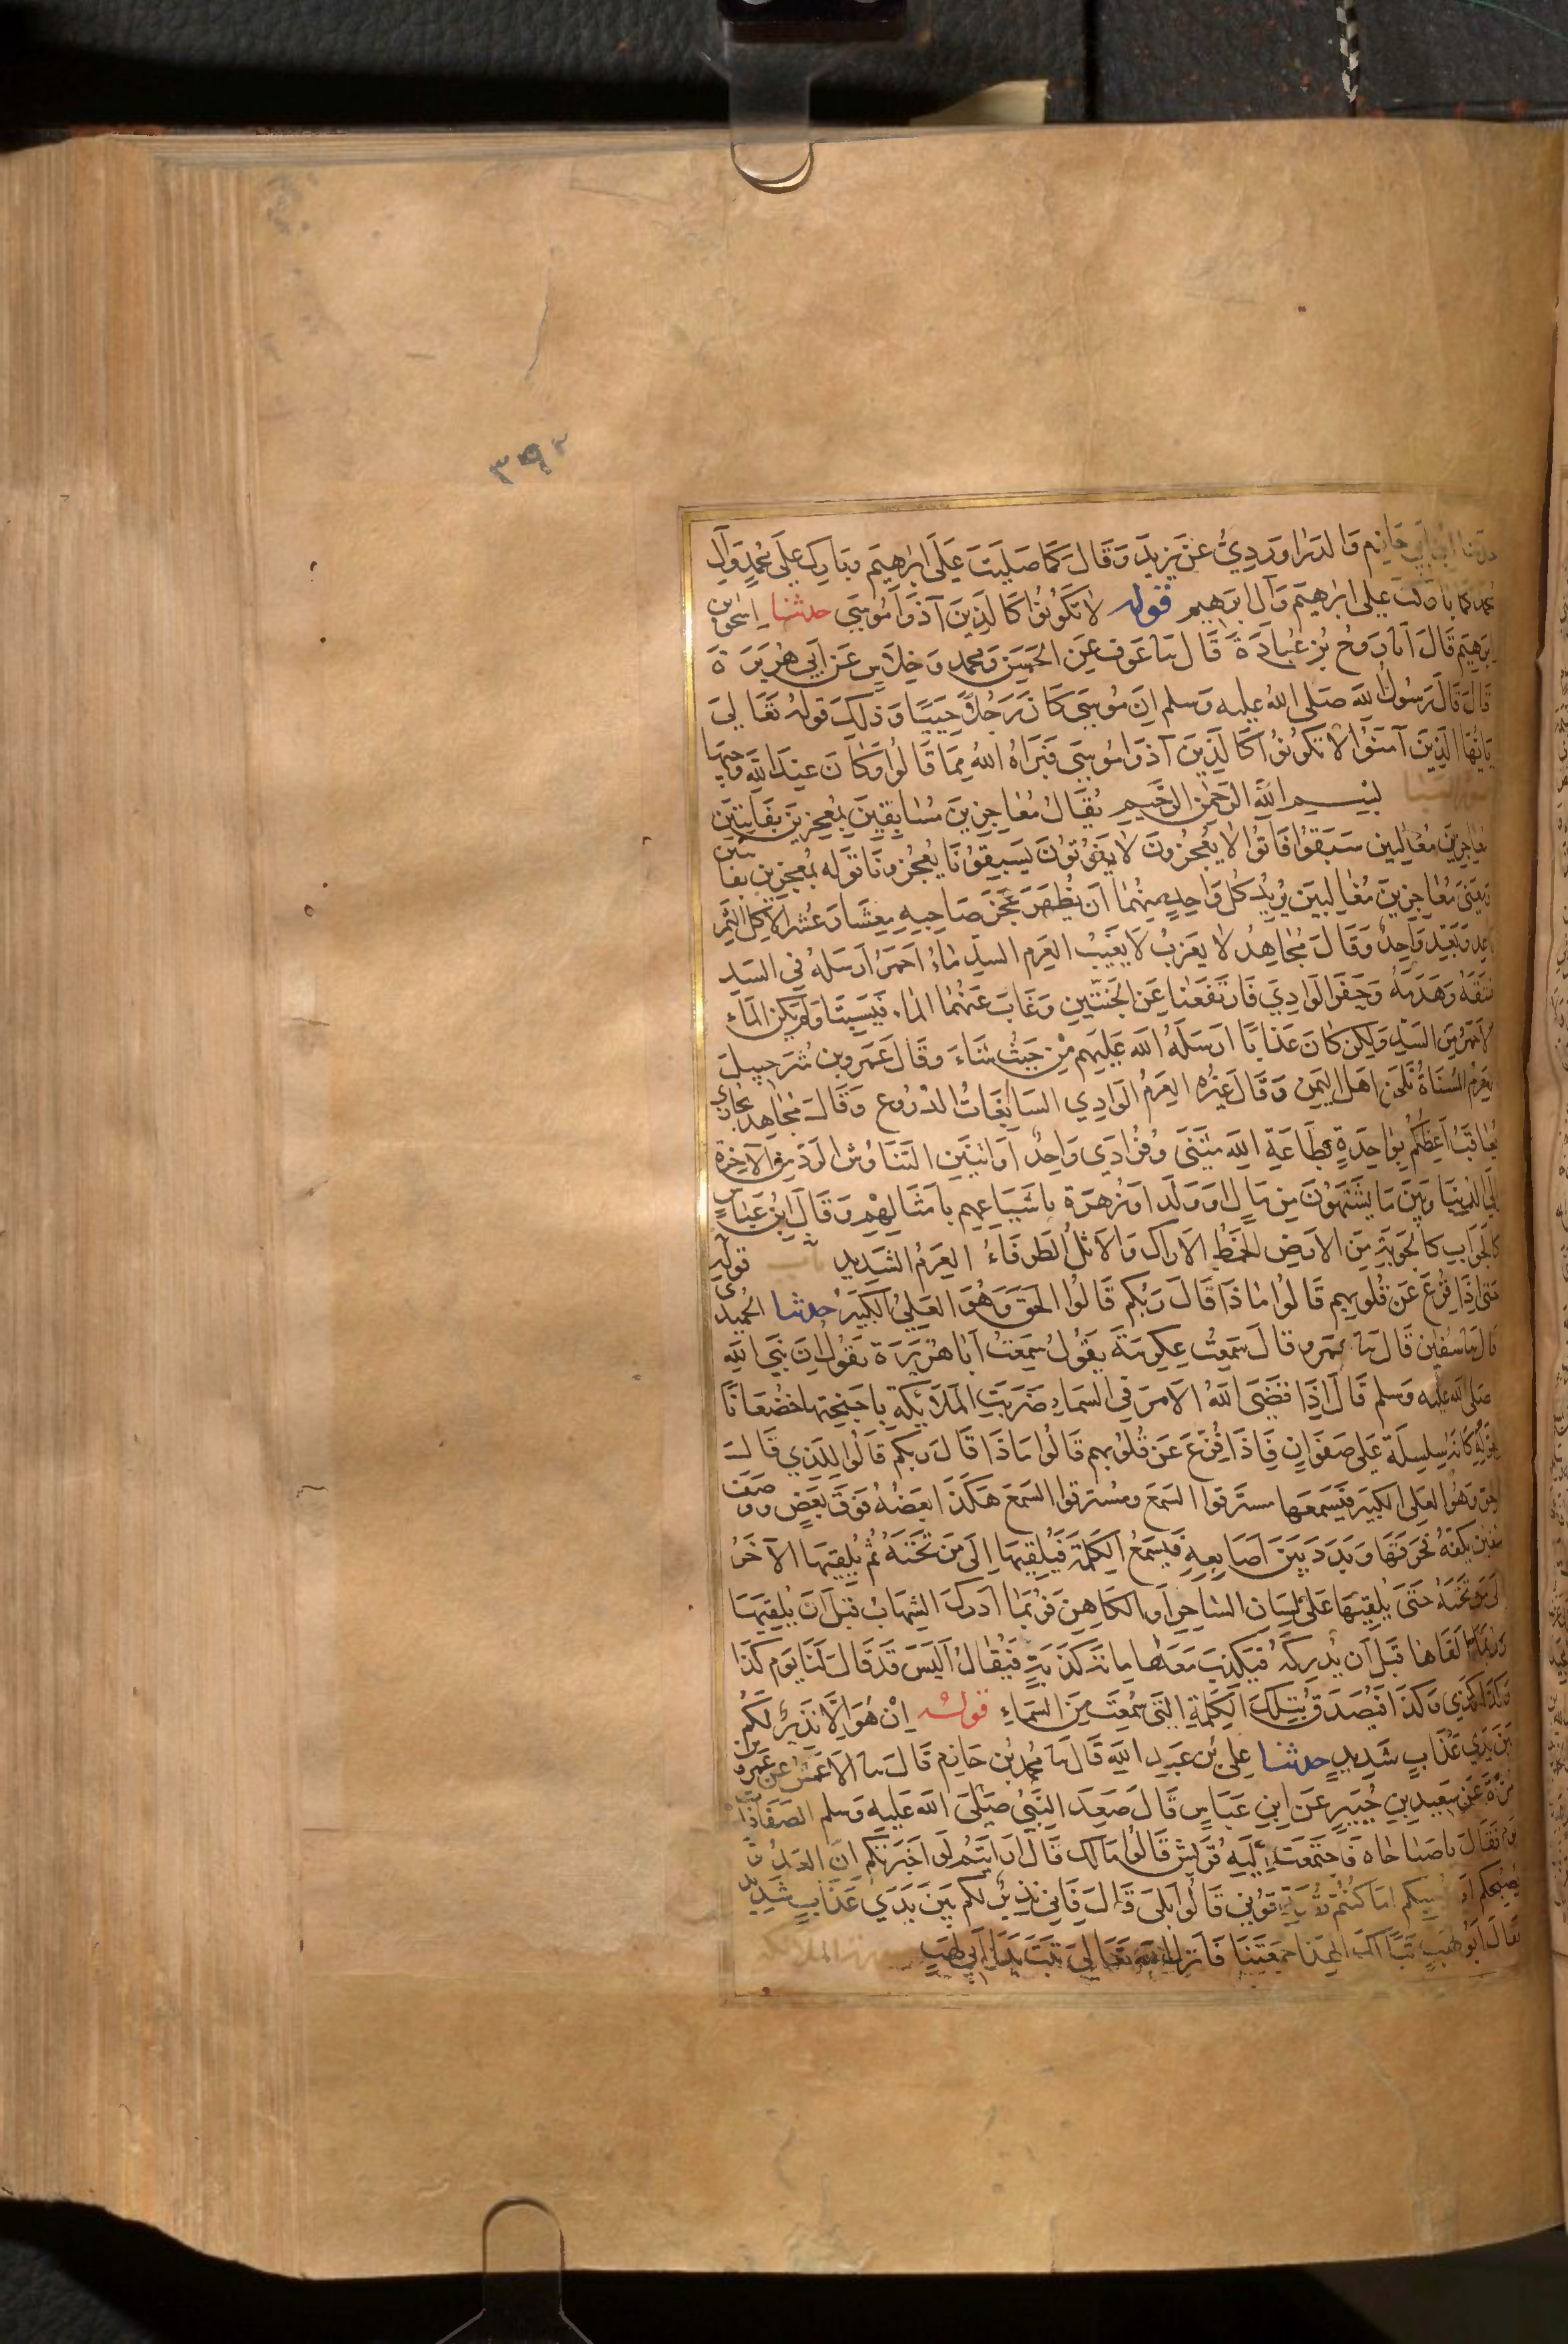 ٣٩٢
حدثنا ابن ابي حازم والدراوردي عن يزيد وقال كما صليت على ابراهيم وبارك على محمد وآل
محمد كما باركت على ابراهيم وآل ابرهيم قوله لا تكونوا كالذين آذوا موسى حدثنا اسحق بن
ابرهيم قال انا روح بن عبادة قال نا عوف عن الحسن ومحمد وخلاس عن ابي هريرة
قال قال رسول الله صلى الله عليه وسلم ان موسى كان رجلا حييا وذلك قوله تعالى
يايها الذين آمنوا لا تكونوا كالذين آذوا موسى فبراه الله مما قالوا وكان عند الله وجيها
بسم الله الرحمن الرحيم يقال معاجزين مسابقين بمعجزين بفايتين
معاجزين مغالبين سبقوا فاتوا لا يعجزون لا يفوتون يسبقونا يعجزونا قوله بمعجزين بفائتين
ومعنى معاجزين مغالبين يريد كل واحد منهما ان يظهر عجز صاحبه معشار عشر الاكل الثمر
باعد وبعد واحد وقال مجاهد لا يعزب لا يغيب العرم السد ماء احمر ارسله في السد
فشقه وهدمه وحفر الوادي فارتفعتا عن الجنتين وغاب عنهما الماء فيبستا ولم يكن الماء
الاحمر من السد ولكن كان عذابا ارسله الله عليهم من حيث شاء وقال عمرو بن شرحبيل
العرم المسناة بلحن اهل اليمن وقال غيره العرم الوادي السابغات الدروع وقال مجاهد يجازى
يعاقب اعظكم بواحدة بطاعة الله مثنى وفرادى واحد او اثنين التناوش الرد من الاخرة
الى الدنيا وبين ما يشتهون من مال او ولد او زهرة باشياعهم بامثالهم وقال ابن عباس
كالجواب كالجوبة من الارض الخمط الاراك والاثل الطرفاء العرم الشديد باب قوله
حتى اذا فزع عن قلوبهم قالوا ماذا قال ربكم قالوا الحق وهو العلي الكبير حدثنا الحميدي
قال نا سفين قال نا عمرو قال سمعت عكرمة يقول سمعت ابا هريرة يقول ان نبي الله
صلى الله عليه وسلم قال اذا قضى الله الامر في السماء ضربت الملائكة باجنحتها خضعانا
لقوله كانه سلسلة على صفوان فاذا فزع عن قلوبهم قالوا ماذا قال ربكم قالوا للذي قال
الحق وهو العلي الكبير فيسمعها مسترقوا السمع ومسترقوا السمع هكذا بعضه فوق بعض ووصف
سفين بكفه فحرفها وبدد بين اصابعه فيسمع الكلمة فيلقيها الى من تحته ثم يلقيها الآخر
الى من تحته حتى يلقيها على لسان الساحر او الكاهن فربما ادرك الشهاب قبل ان يلقيها
وربما القاها قبل ان يدركه فيكذب معها مائة كذبة فيقال اليس قد قال لنا يوم كذا
وكذا كذى وكذا فيصدق بتلك الكلمة التي سمعت من السماء قوله ان هو الا نذير لكم
بين يدي عذاب شديد حدثنا علي بن عبد الله قال نا محمد بن خازم قال نا الاعمش عن عمرو بن
مرة عن سعيد بن جبير عن ابن عباس قال صعد النبي صلى الله عليه وسلم الصفا ذات
يوم فقال يا صباحاه فاجتمعت اليه قريش قالوا مالك قال ارايتم لو اخبرتكم ان العدو
يصبحكم او يمسيكم اما كنتم تصدقوني قالوا بلى قال فاني نذير لكم بين يدي عذاب شديد
فقال ابو لهب تبا لك الهذا جمعتنا فانزل الله تعالى تبت يدا ابي لهب الملائكة